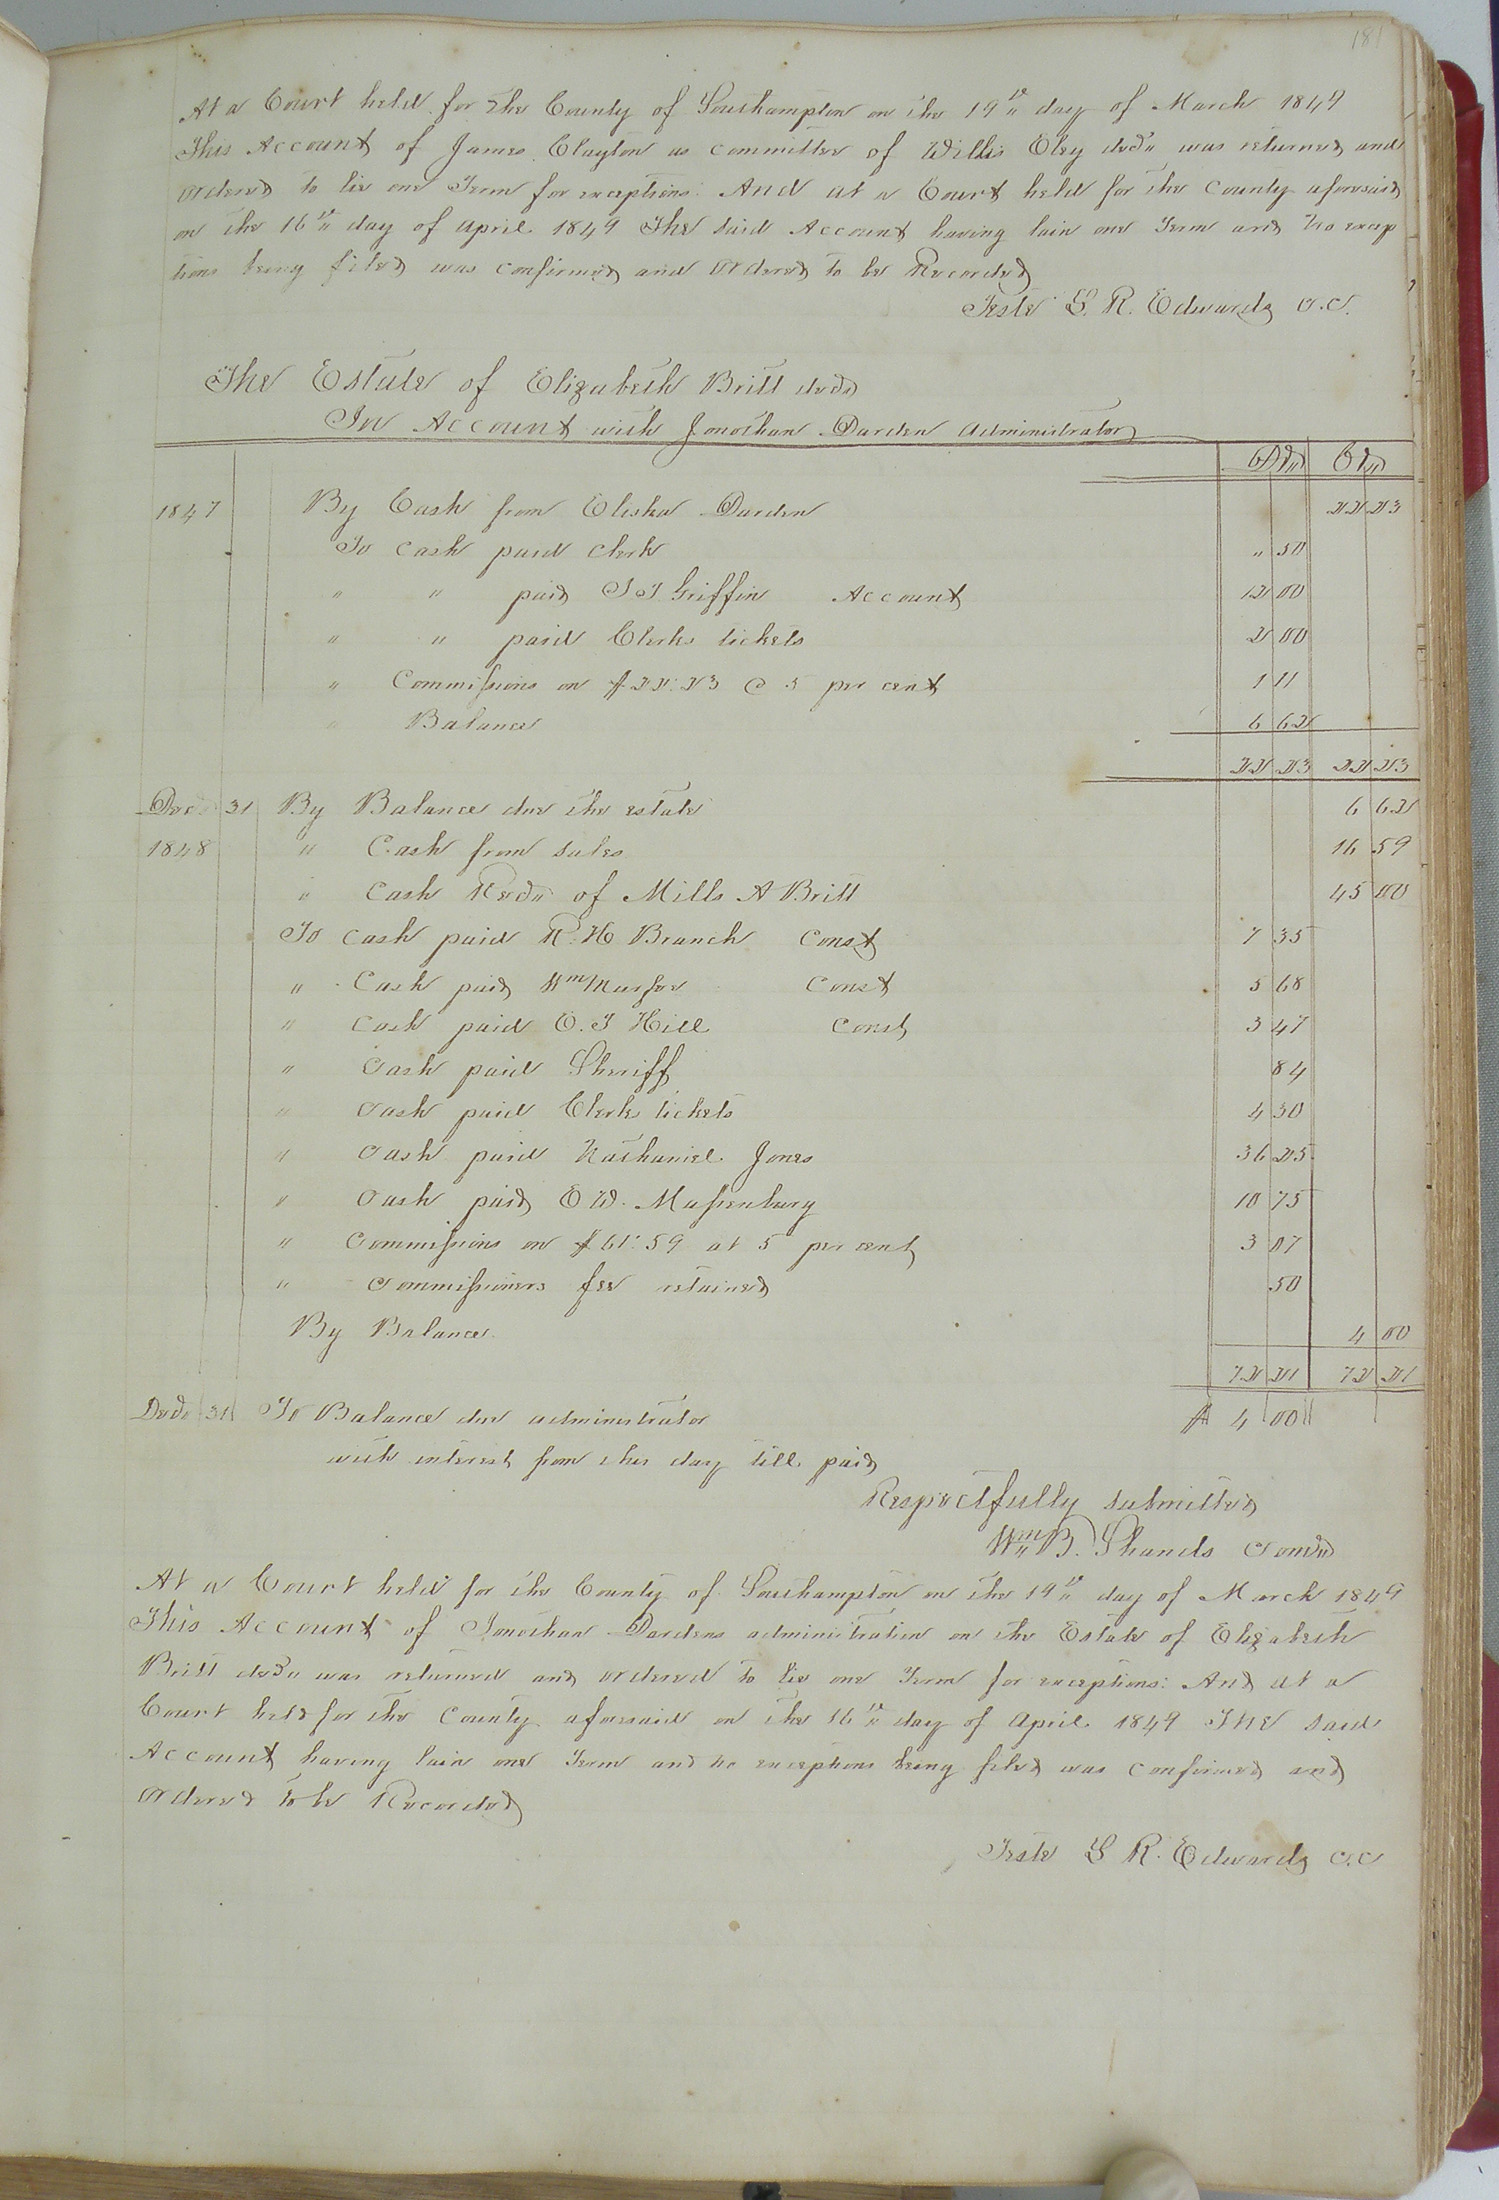 181
At a Court held for the County of Southampton on the 19th day of March 1849
This Account of James Clayton as committee of Willis Eley decd was returned and
ordered to lie one Term for exceptions: And at a Court held for the County aforesaid
on the 16th day of April 1849 The said Account having lain one Term and no excep
tions being filed was confirmed and ordered to be Recorded
Teste L. R. Edwards C.C.
The Estate of Elizabeth Britt decd
In Account with Jonothan Darden Administrator
Dr Cr
1847 By Cash from Elisha Darden 22 23
To cash paid Clerk " 50
" " paid Griffin Account 12 00
" " paid Clerks tickets 2 00
" Commissions on $22:23 @ 5 per cent 1 11
" Balance 6 62
22 23 22 23
Decr 31 By Balance due the estate 6 62
1848 " Cash from sales 16 59
" Cash Recd of Mills A Britt 45 00
To cash paid R. H Branch Const 7 35
" Cash paid Wm Const 5 68
" Cash paid E. T Hill Const 3 47
" Cash paid Sheriff 84
" Cash paid Clerks tickets 4 30
" Cash paid Nathaniel Jones 36 25
" Cash paid E W. Massenburg 10 75
" Commissions on $61:59 at 5 per cent 3 07
" Commissioners fee retained 50
By Balance 4 00
72 21 72 21
Decr 31 To Balance due administrator $ 4 00
with interest from this day till paid
Respectfully submitted
Wm B. Shands Comr
At a Court held for the County of Southampton on the 19th day of March 1849
This Account of Jonothan Dardens administration on the Estate of Elizabeth
Britt decd was returned and ordered to lie one Term for exceptions: And at a
Court held for the County aforesaid on the 16th day of April 1849 The said
Account having lain one Term and no exceptions being filed was confirmed and
ordered to be Recorded
Teste L R. Edwards C.C